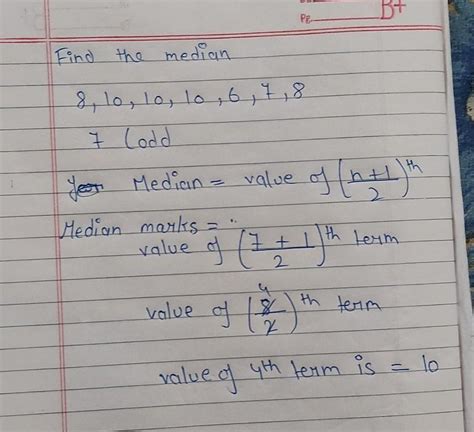 PG.
B+
Find the median
8, 10, 10, 10, 6, 7, 8
7 (odd
Median = value of (n+1/2)th
Median marks =
value of (7+1/2)th term
value of (8/2)th term 4
value of 4th term is = 10